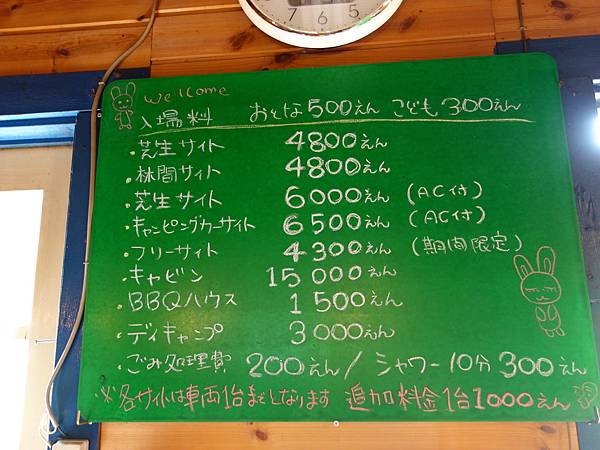 Welcome
入場料 おとな500えん こども300えん
・芝生サイト 4800えん
・林間サイト 4800えん
・芝生サイト 6000えん (AC付)
・キャンピングカーサイト 6500えん (AC付)
・フリーサイト 4300えん (期間限定)
・キャビン 15000えん
・BBQハウス 1500えん
・デイキャンプ 3000えん
・ごみ処理費 200えん/シャワー10分 300えん
※各サイトは車両1台までとなります 追加料金1台1000えん
7 6 5